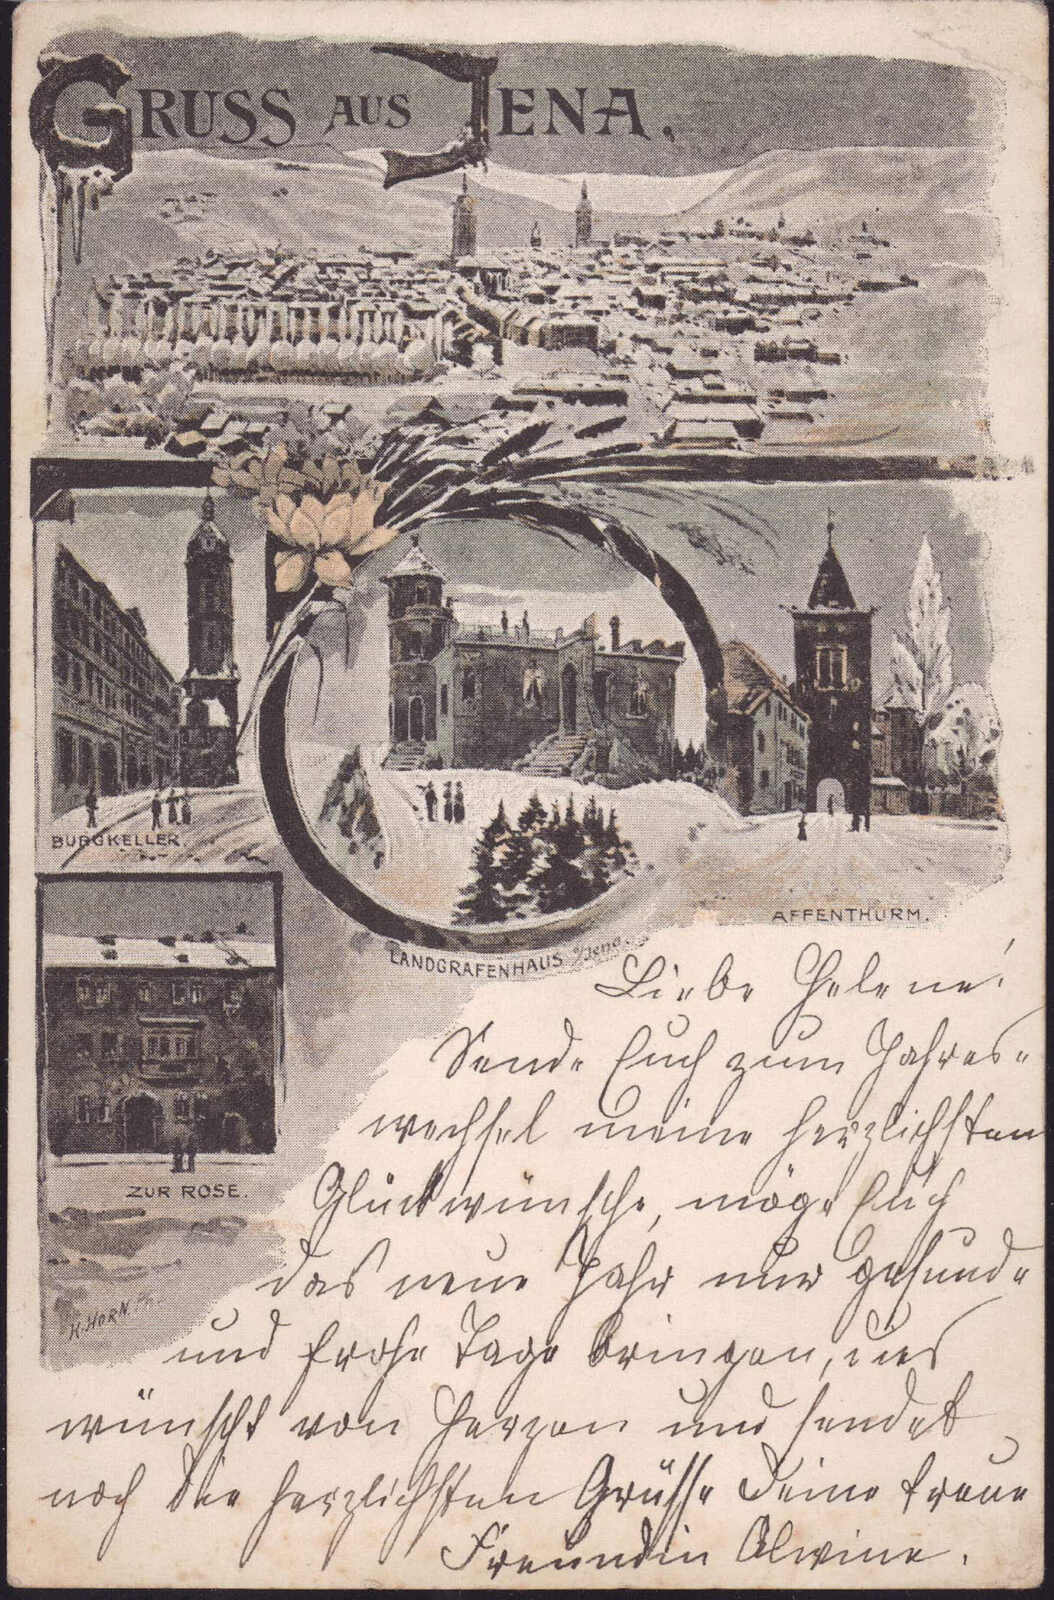 GRUSS AUS JENA.
BURGKELLER.
LANDGRAFENHAUS b/Jena.
AFFENTHURM.
ZUR ROSE.
H. HORN.
Liebe Helene!
Sende Euch zum Jahres-
wechsel meine herzlichsten
Glückwünsche, möge Euch
das neue Jahr nur gesunde
und frohe Tage bringen, dies
wünscht von Herzen und sendet
noch die herzlichsten Grüsse Deine treue
Freundin Alwine.